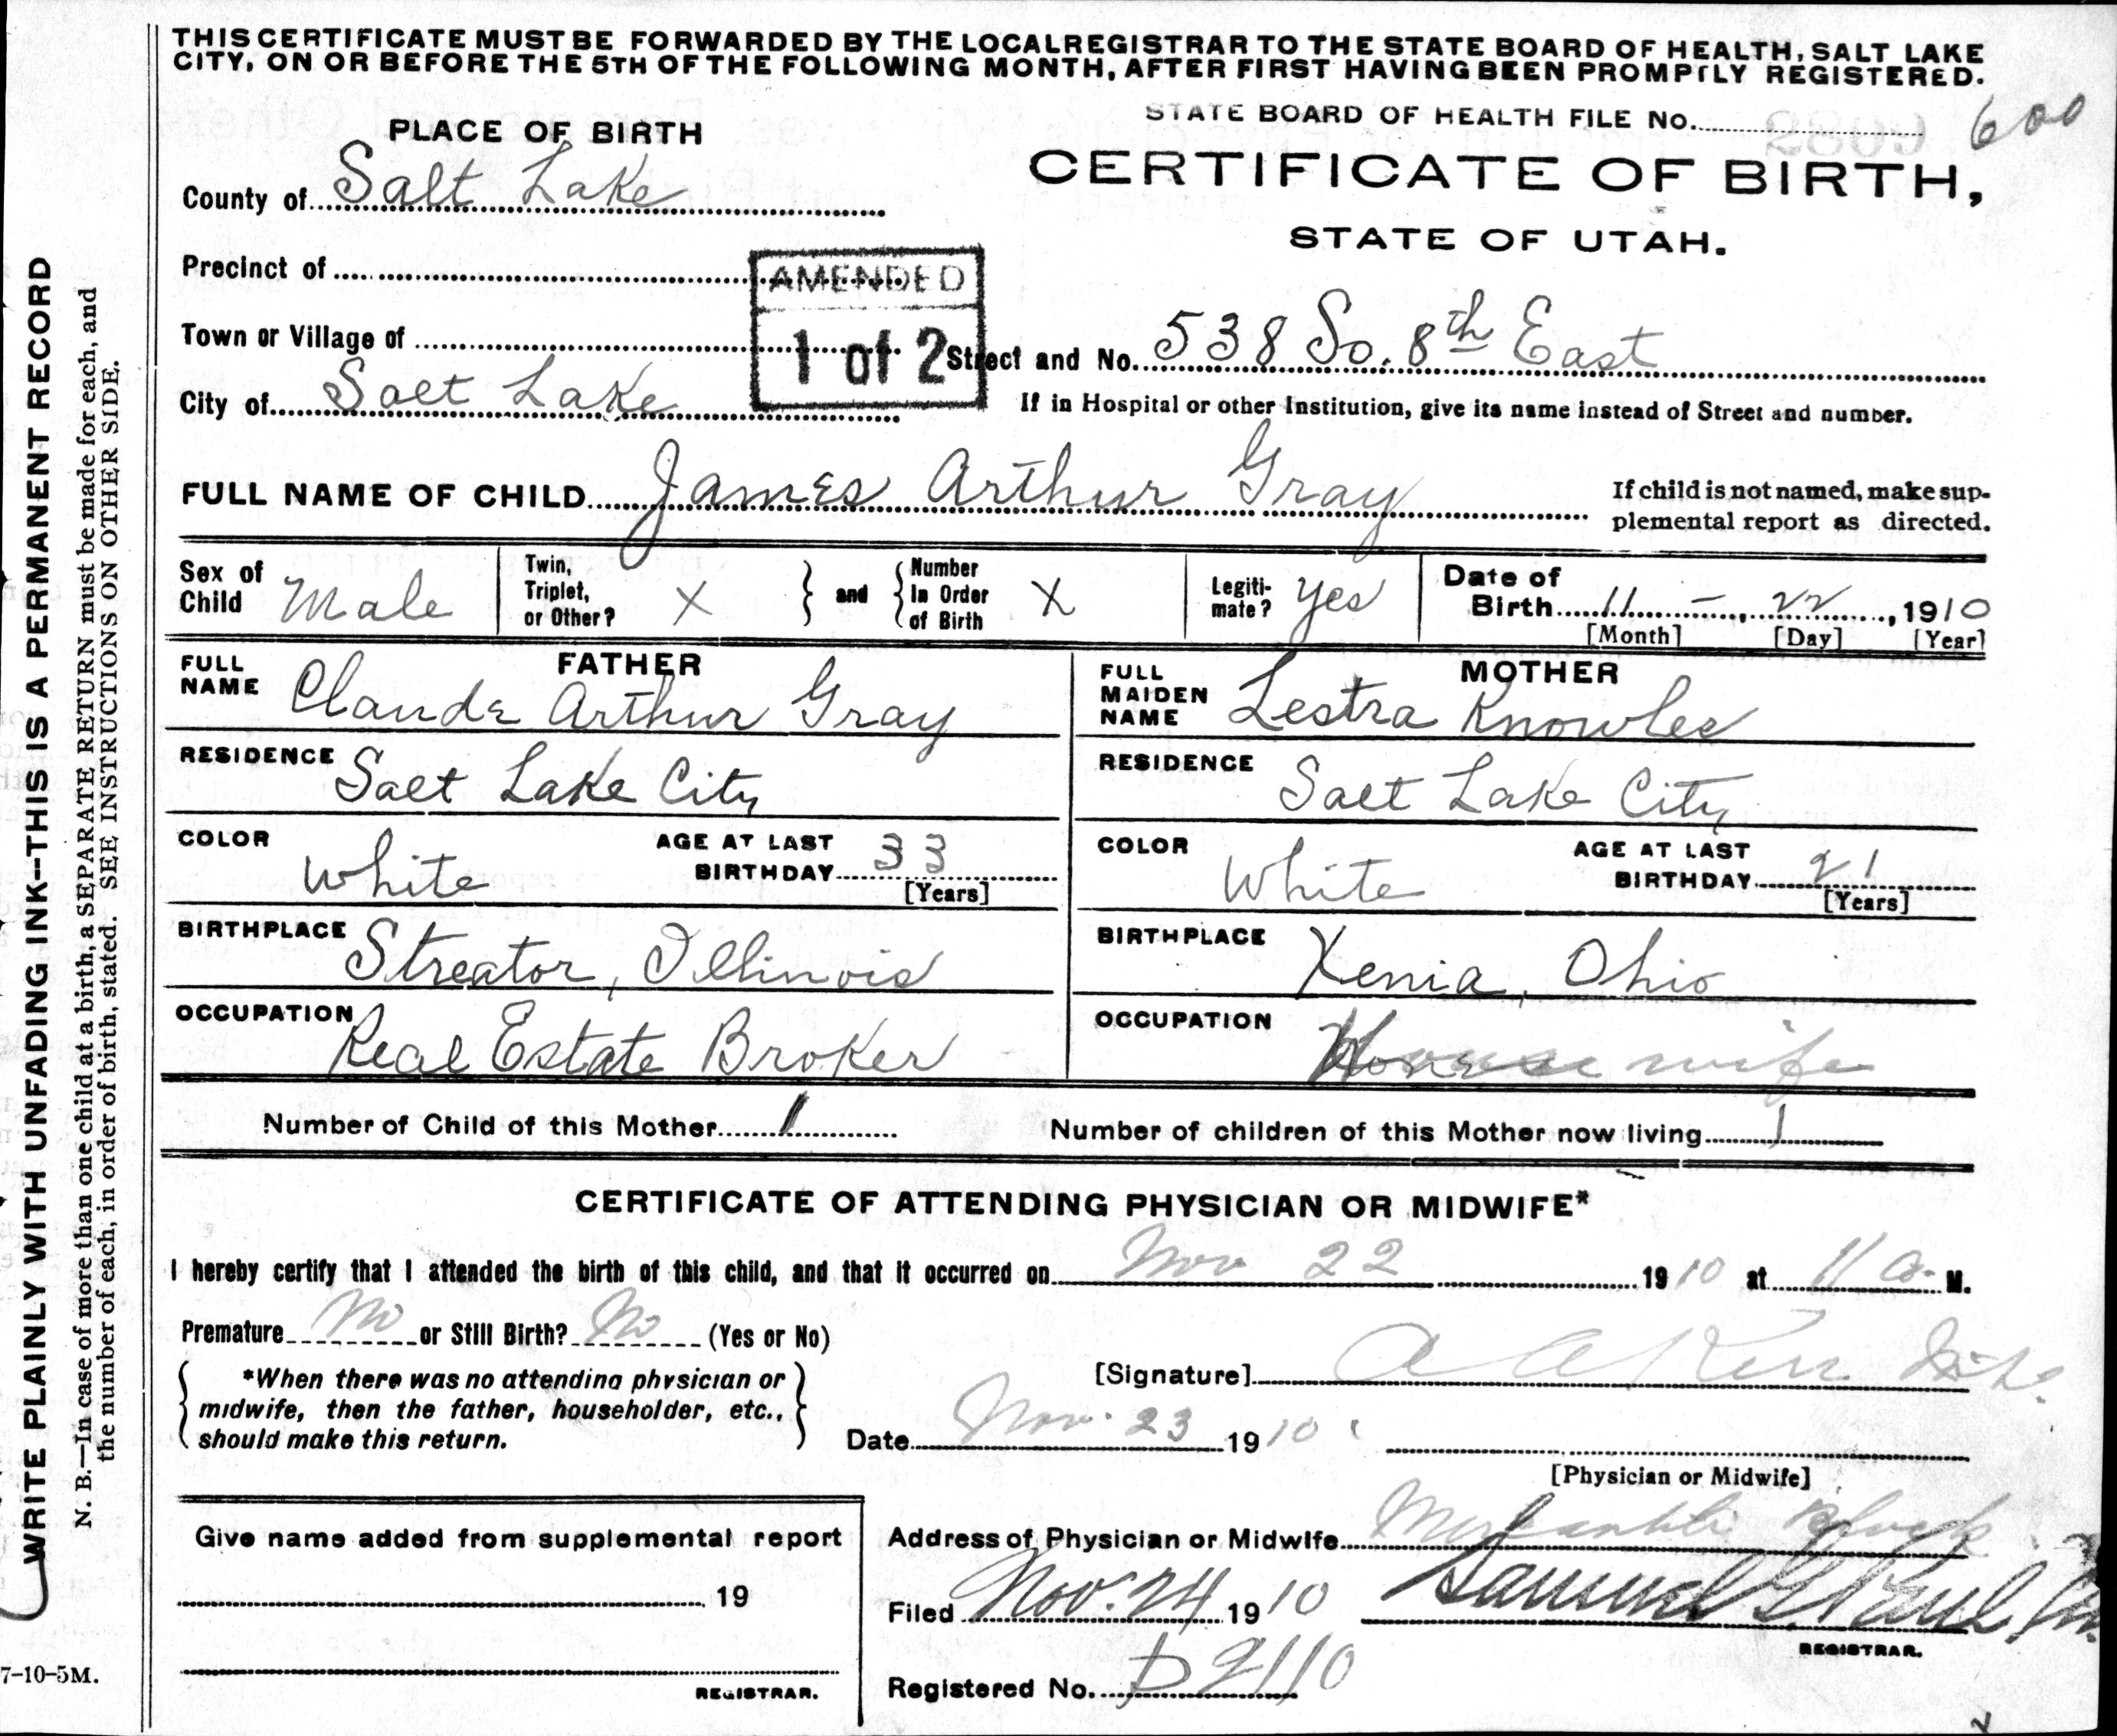 THIS CERTIFICATE MUST BE FORWARDED BY THE LOCAL REGISTRAR TO THE STATE BOARD OF HEALTH, SALT LAKE
CITY, ON OR BEFORE THE 5TH OF THE FOLLOWING MONTH, AFTER FIRST HAVING BEEN PROMPTLY REGISTERED.
STATE BOARD OF HEALTH FILE No. 600
PLACE OF BIRTH
CERTIFICATE OF BIRTH,
STATE OF UTAH.
County of Salt Lake
Precinct of
AMENDED
1 of 2
Town or Village of
Street and No. 538 So. 8th East
City of Salt Lake
If in Hospital or other Institution, give its name instead of Street and number.
FULL NAME OF CHILD James Arthur Gray
If child is not named, make sup-
plemental report as directed.
Sex of Child Male
Twin, Triplet, or Other? X
and Number In Order of Birth X
Legiti-mate? Yes
Date of Birth 11 - 22, 1910
[Month] [Day] [Year]
FATHER
FULL NAME Claude Arthur Gray
RESIDENCE Salt Lake City
COLOR White
AGE AT LAST BIRTHDAY 33
[Years]
BIRTHPLACE Streator, Illinois
OCCUPATION Real Estate Broker
MOTHER
FULL MAIDEN NAME Lestra Knowles
RESIDENCE Salt Lake City
COLOR White
AGE AT LAST BIRTHDAY 21
[Years]
BIRTHPLACE Xenia, Ohio
OCCUPATION Housewife
Number of Child of this Mother 1
Number of children of this Mother now living 1
CERTIFICATE OF ATTENDING PHYSICIAN OR MIDWIFE*
I hereby certify that I attended the birth of this child, and that it occurred on Nov 22 1910 at 11 a. M.
Premature No or Still Birth? No (Yes or No)
*When there was no attending physician or
midwife, then the father, householder, etc.,
should make this return.
[Signature] A A Kerr
Date Nov. 23 1910
[Physician or Midwife]
Address of Physician or Midwife Mercantile Block
Give name added from supplemental report
19
REGISTRAR.
Filed Nov. 24 1910
Samuel G. Paul
REGISTRAR.
Registered No. D2110
WRITE PLAINLY WITH UNFADING INK--THIS IS A PERMANENT RECORD
N. B.—In case of more than one child at a birth, a SEPARATE RETURN must be made for each, and
the number of each, in order of birth, stated. SEE INSTRUCTIONS ON OTHER SIDE.
7-10-5M.